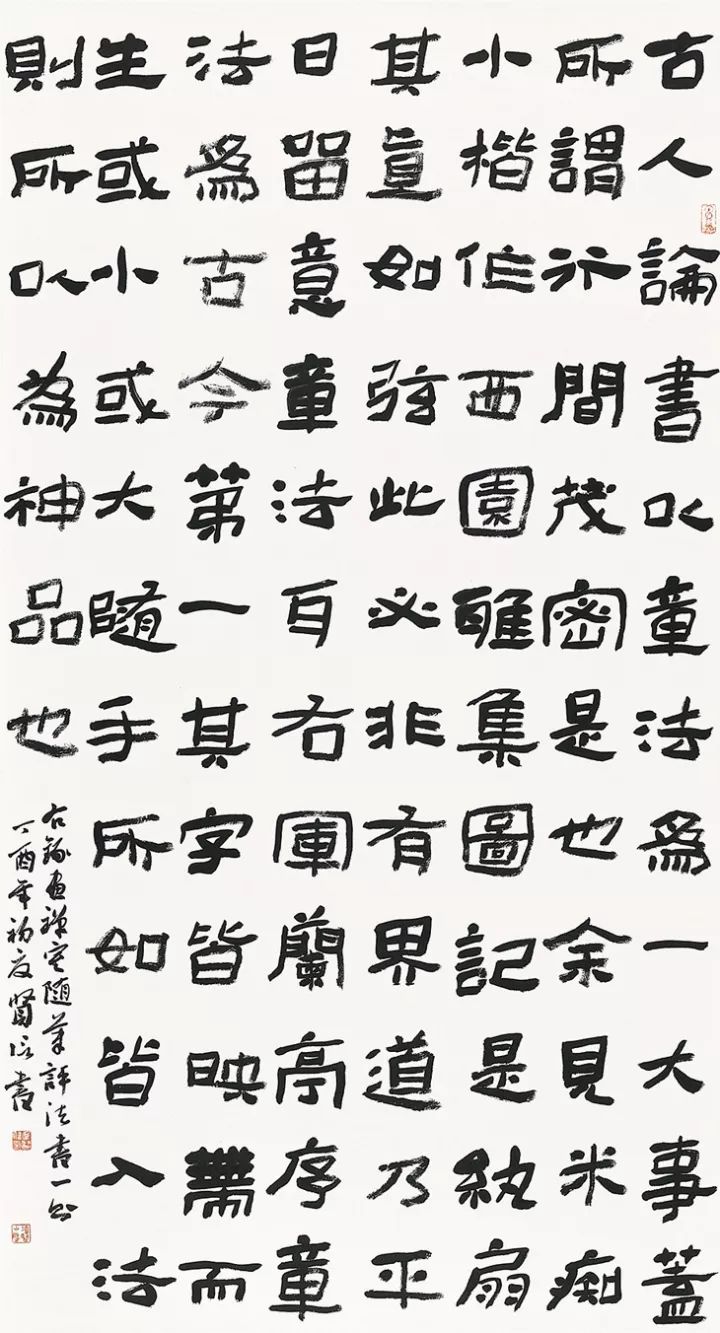 古人論書以章法爲一大事蓋
所謂行間茂密是也余見米痴
小楷作西園雅集圖記是紈扇
其直如弦此必非有界道乃平
日留意章法耳右軍蘭亭序章
法爲古今苐一其字皆映帶而
生或小或大隨手所如皆入法
則所以為神品也
右錄畫禪室隨筆評法書一則
丁酉年初夏賢書